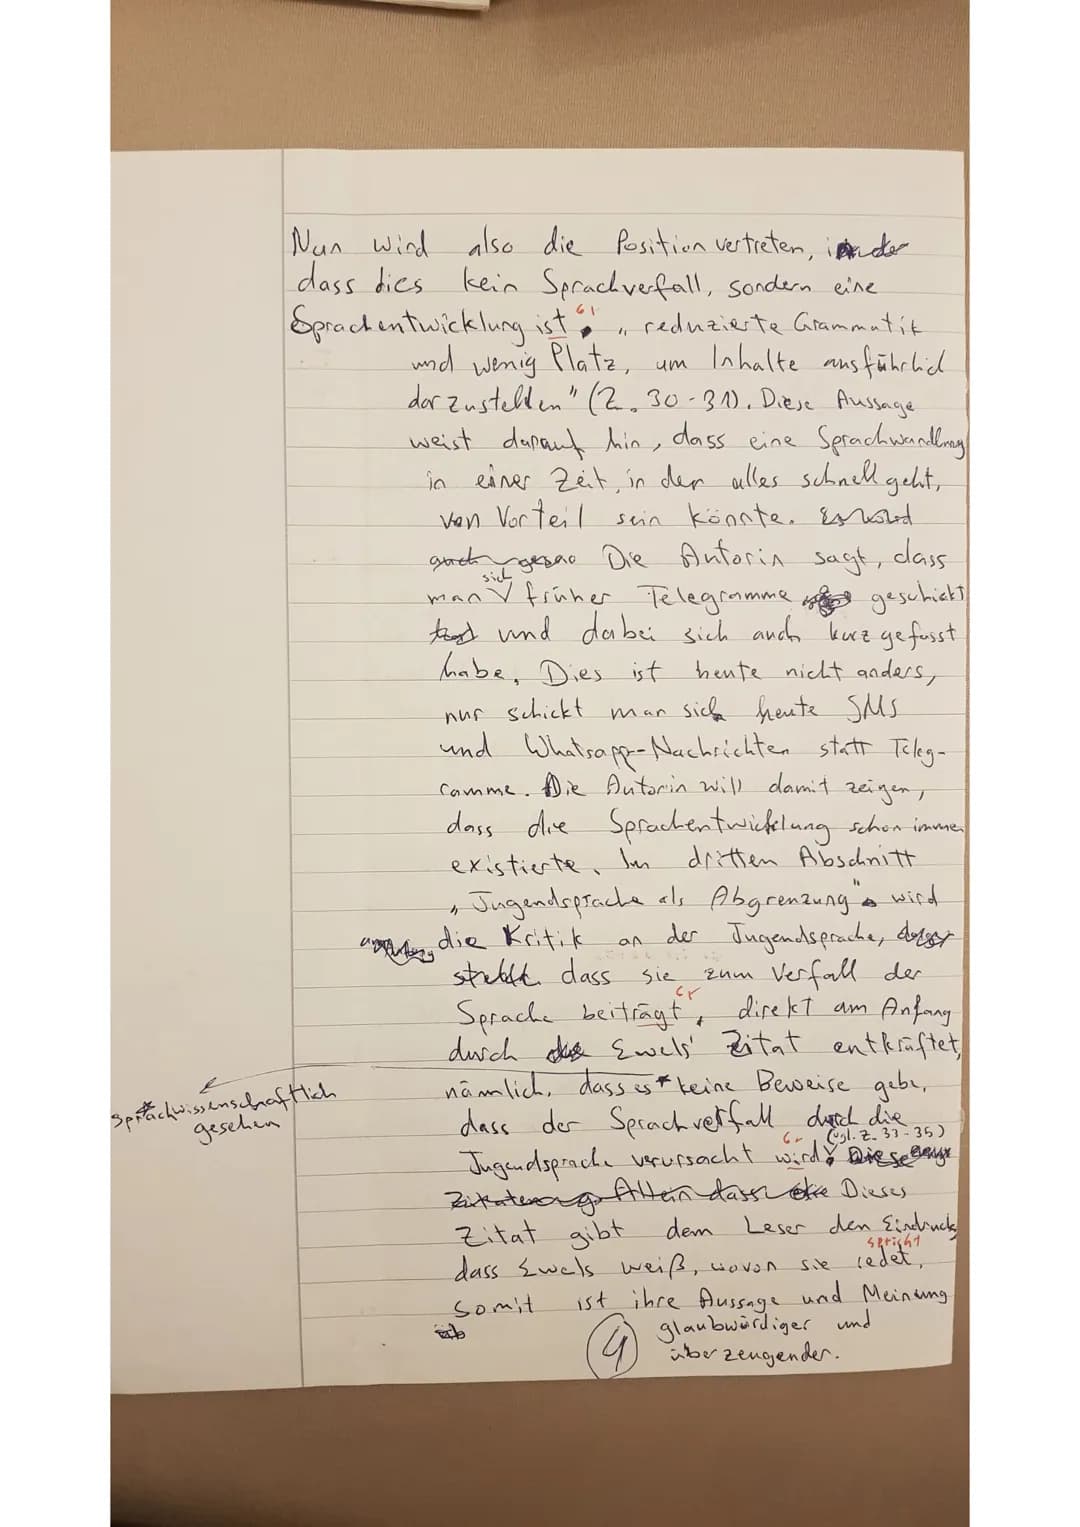 Nun wird also die Position vertreten,
dass dies kein Sprachverfall, sondern eine
Sprachentwicklung ist. „reduzierte Grammatik
und wenig Platz, um Inhalte ausführlich
darzustellen" (Z. 30-31). Diese Aussage
weist darauf hin, dass eine Sprachwandlung
in einer Zeit, in der alles schnell geht,
von Vorteil sein könnte. Es wird
auch Die Autorin sagt, dass
sich
man V früher Telegramme geschickt
und dabei sich auch kurz gefasst
habe. Dies ist heute nicht anders,
nur schickt man sich heute SMS
und Whatsapp-Nachrichten statt Teleg-
ramme. Die Autorin will damit zeigen,
dass die Sprachentwicklung schon immer
existierte. Im dritten Abschnitt
„Jugendsprache als Abgrenzung" wird
die Kritik an der Jugendsprache,
dass sie zum Verfall der
Sprache beiträgt, direkt am Anfang
durch Ewels' Zitat entkräftet,
nämlich, dass es * keine Beweise gebe,
* sprachwissenschaftlich
gesehen
dass der Sprachverfall durch die
(vgl. Z. 33-35)
Jugendsprache verursacht wird V. Diese
Allein dass die Dieses
Zitat gibt dem Leser den Eindruck,
spricht
dass Ewels weiß, wovon sie redet,
somit ist ihre Aussage und Meinung
glaubwürdiger und
überzeugender.
4